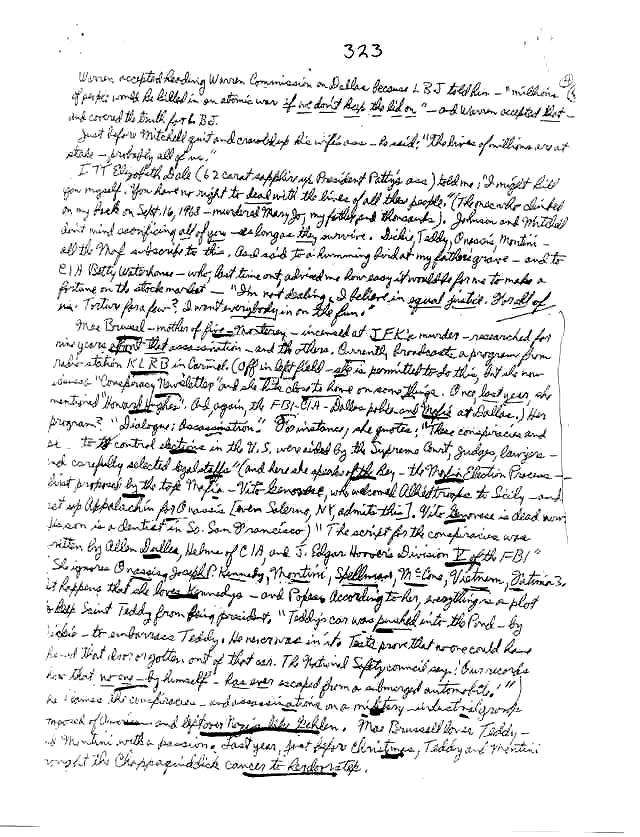 323
Warren accepted heading Warren Commission on Dallas because LBJ told him - "millions
of people would be killed in an atomic war if we don't keep the lid on" - and Warren accepted that -
and covered the truth for LBJ.
Just before Mitchell quit and crawled up his wife's ass - he said: "The lives of millions are at
stake - probably all of us."
ITT Elizabeth Dale (62 carat sapphire up President Patty's ass) told me, "I might kill
you myself. You have no right to deal with the lives of all these people." (Those who climbed
on my back on Sept. 16, 1968 - murdered Mary Jo, my father, and thousands). Johnson and Mitchell
don't mind sacrificing all of you - as long as they survive. Dickie, Teddy, Onassis, Montini -
all the Mof subscribe to this. As I said to a humming bird at my father's grave - and to
CIA Betty Waterhouse - who, last time out, advised me how easy it would be for me to make a
fortune on the stock market - "I'm not dealing. I believe in equal justice. For all of
us. Torture for a few? I want everybody in on the fun."
Mae Brussel - mother of five - Monterey - incensed at JFK's murder - researched for
nine years that assassination - and the others. Currently, broadcasts a program from
radio station KLRB in Carmel. (Off in left field - she is permitted to do this, but she now
issues "Conspiracy Newsletter" and she hits close to home on some things. Once, last year, she
mentioned "Howard Hughes". And, again, the FBI - CIA - Dallas police and Mafia at Dallas.) Her
program? "Dialogue: Assassination". For instance, she quotes: "These conspiracies and
to control elections in the U.S. were aided by the Supreme Court, judges, lawyers -
and carefully selected legal staffs" (and here she speaks of the Key - the Mafia Election Process -
first proposed by the top Mafia - Vito Genovese, who welcomed Allied troops to Sicily - and
set up Appalachin for Onassis [even Salerno, NY, admits this]. Vito Genovese is dead now
(his son is a dentist in So. San Francisco) "The script for the conspiracies was
written by Allen Dulles, Helms of CIA, and J. Edgar Hoover's Division V of the FBI"
She ignores Onassis, Joseph P. Kennedy, Montini, Spellman, McCone, Vietnam, Fatima 3.
it happens that she loves Kennedys - and Popes. According to her, everything is a plot
to keep Saint Teddy from being president. "Teddy's car was pushed into the Pond - by
Dickie - to embarrass Teddy. He never was in it. Tests prove that no one could have
opened that door or gotten out of that car. The National Safety council say: 'Our records
show that no one - by himself - has ever escaped from a submerged automobile.'")
the conspiracies - and assassinations on a military - industrial group
composed of American and leftover Nazis like Gehlen. Mae Brussell loves Teddy -
and Montini with a passion. Last year, just before Christmas, Teddy and Montini
brought the Chappaquiddick cancer to her doorstep.